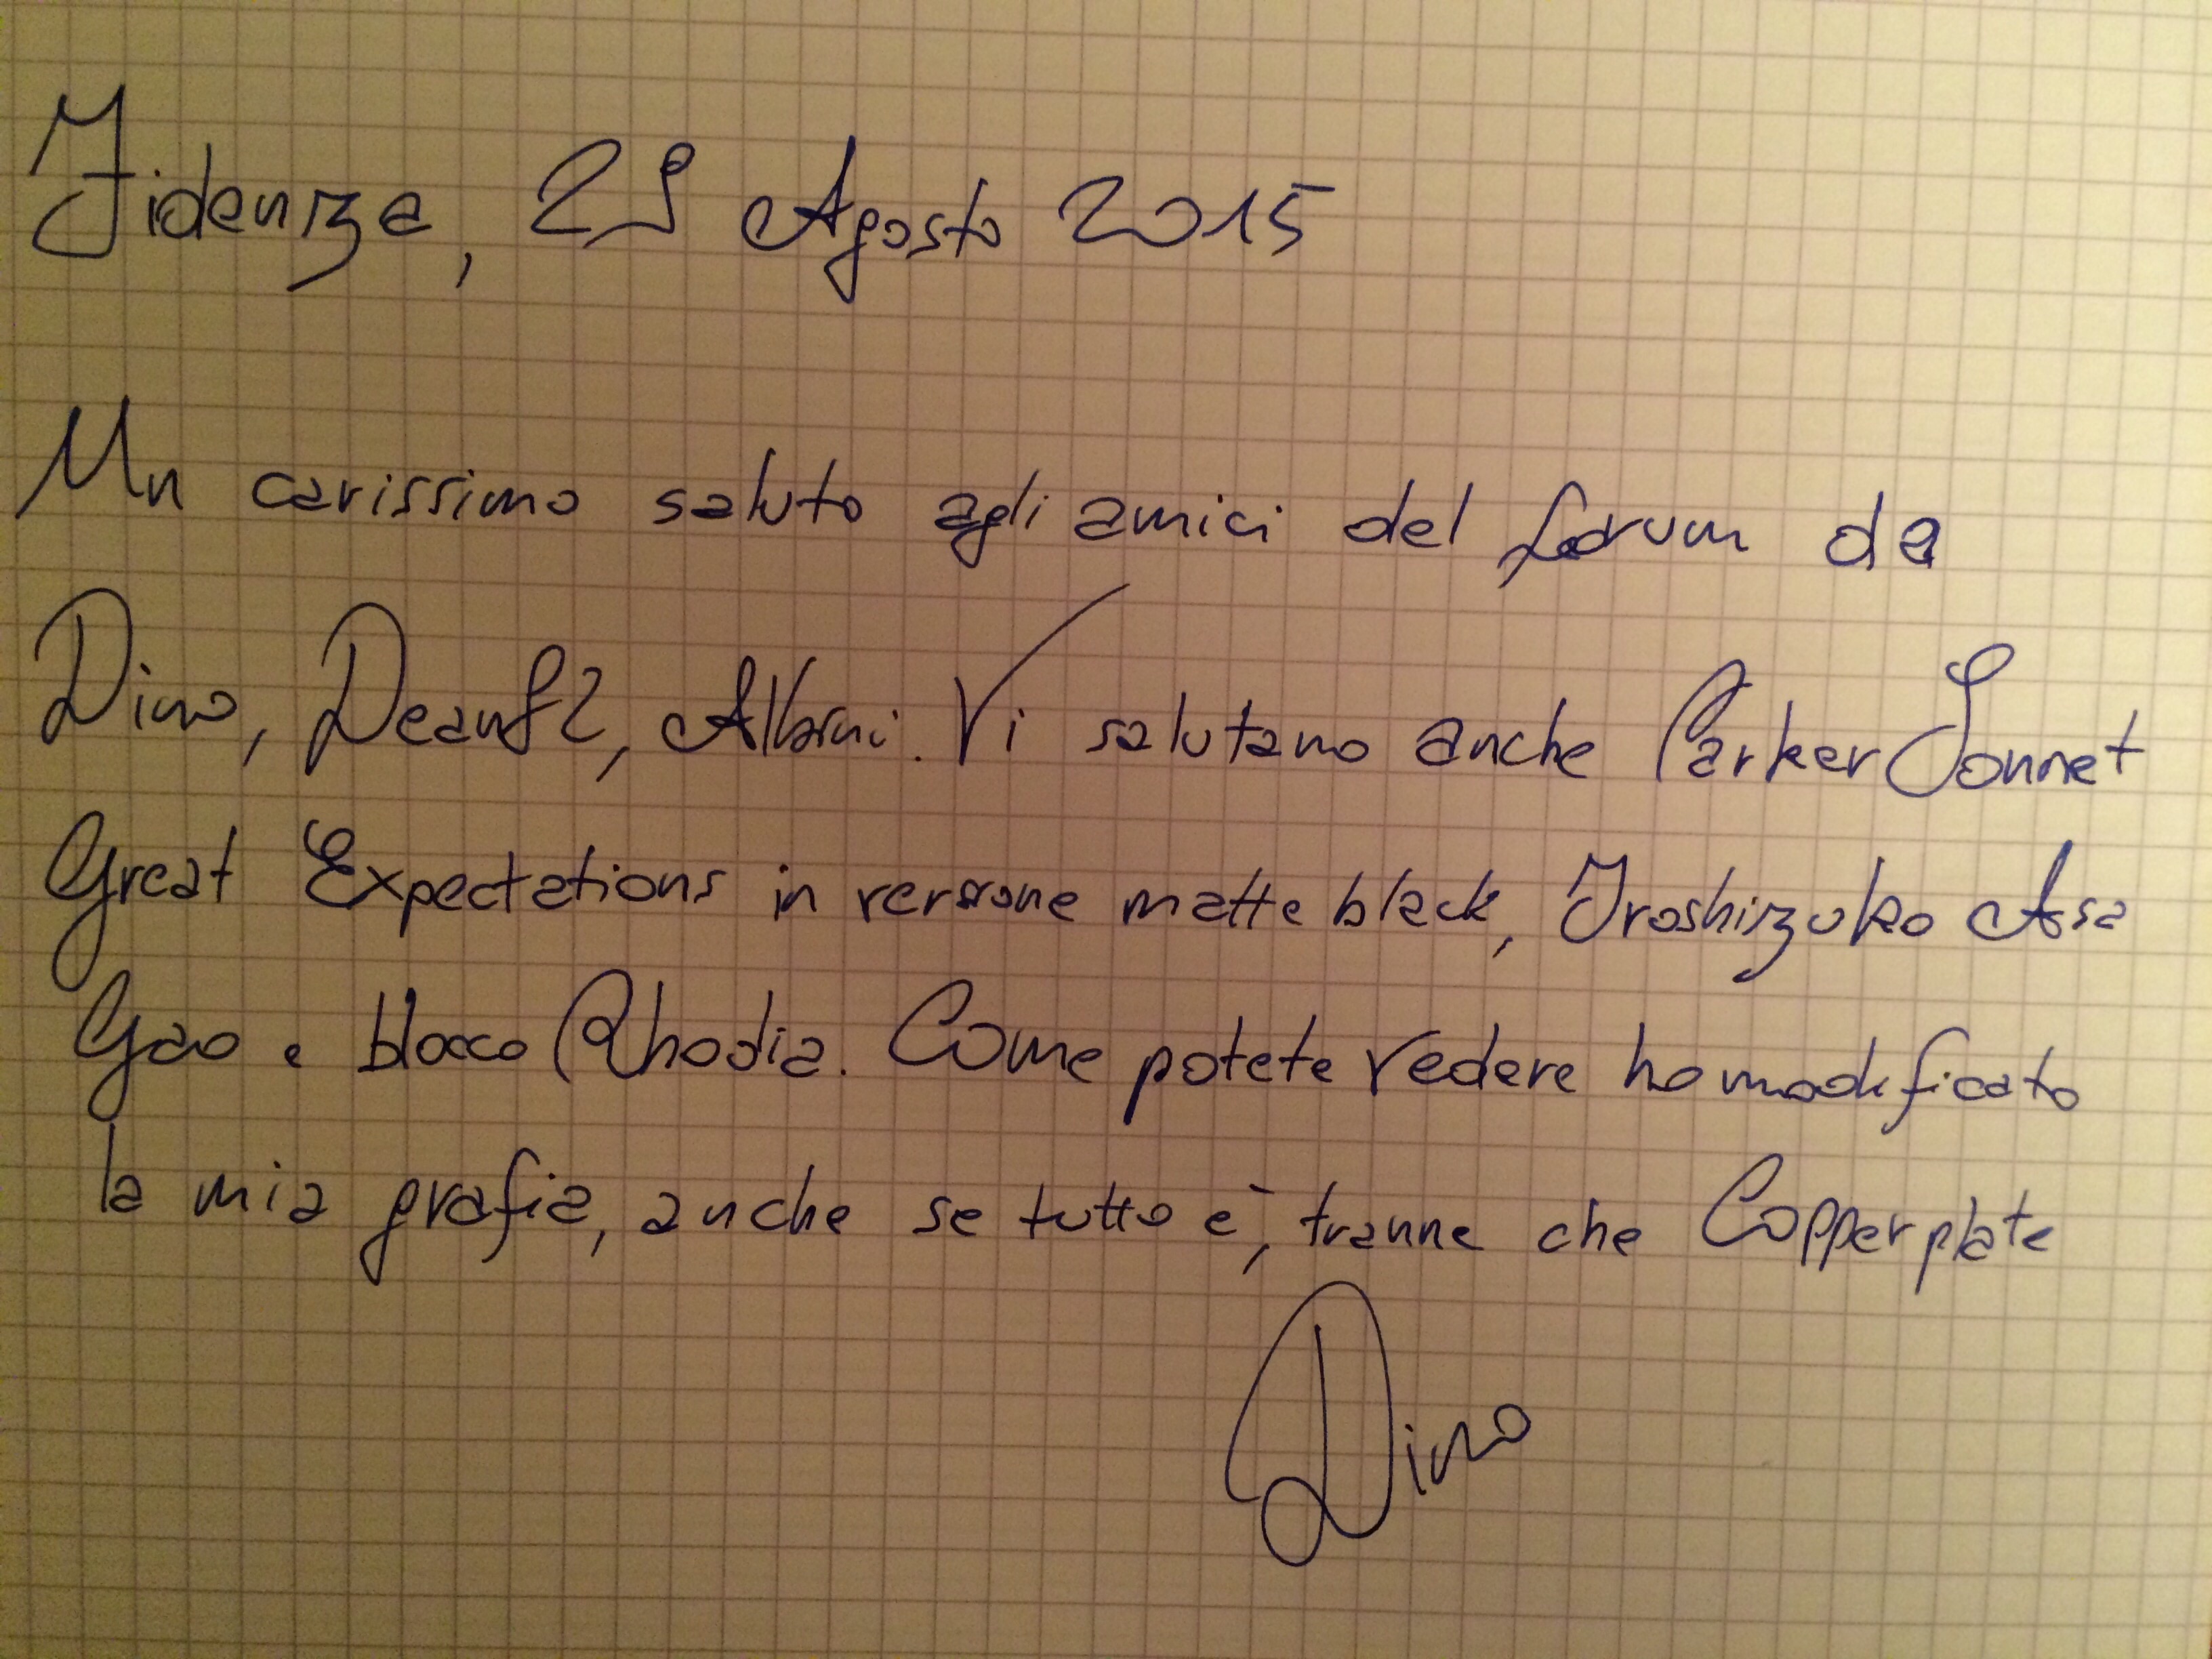 Fidenza, 29 Agosto 2015
Un carissimo saluto agli amici del forum da
Dino, Dean82, Albini. Vi salutano anche Parker Sonnet
Great Expectations in versione matte black, Iroshizuko Asa
Gao e blocco Rhodia. Come potete vedere ho modificato
la mia grafia, anche se tutto è, tranne che Copperplate
Dino